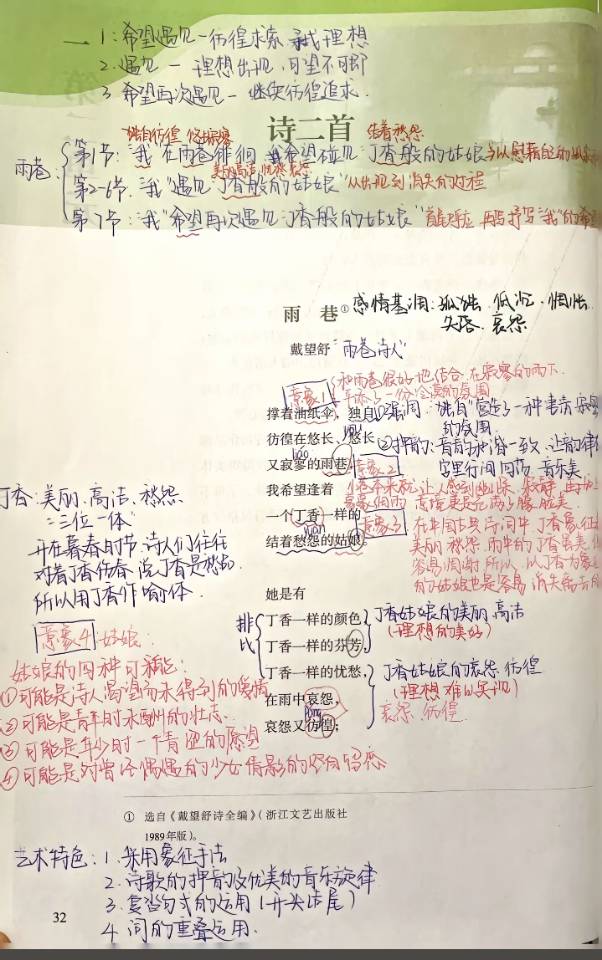 一 1. 希望遇见－彷徨求索 寻找理想
2. 遇见 － 理想出现，可望不可即
3. 希望再次遇见－继续彷徨追求.
诗二首
独自彷徨 悠长寂寥 结着愁怨
雨巷:
第1节: "我"在雨巷徘徊 我希望碰见 丁香般的姑娘
美丽高洁,忧愁哀怨
第2-6节. "我"遇见"丁香般的姑娘" 从出现到消失的过程
第7节: "我"希望再次遇见"丁香般的姑娘" 首尾呼应 再写抒写"我"的希望
雨 巷① 感情基调: 孤独 低沉. 惆怅
失落. 哀怨
戴望舒 "雨巷诗人"
意象1
和雨巷很好地结合 在寂寥的雨下.
平添了一份冷漠的氛围
撑着油纸伞，独自 ①强调: "独自"营造了一种凄清寂寥
的氛围
彷徨在悠长、悠长 ②押韵: 音韵和谐一致,让韵律
字里行间回荡 音乐美
liáo
又寂寥的雨巷，
意象2
我希望逢着
一个丁香一样的
意象3
yuàn
结着愁怨的姑娘。
丁香: 美丽、高洁、愁怨
"三位一体"
开在暮春时节,诗人们往往
对着丁香伤春,说丁香是愁品
所以用丁香作喻体.
意象4 姑娘:
姑娘的四种可能:
①可能是诗人渴望而未得到的爱情
②可能是青年时未酬的壮志.
③可能是年少时一个青涩的愿望
④可能是对曾经偶遇的少女倩影的
她是有
排比
丁香一样的颜色，
丁香姑娘的美丽 高洁
丁香一样的芬芳，
(理想的美好)
丁香一样的忧愁，
丁香姑娘的哀怨 彷徨
在雨中哀怨，
(理想难以实现)
哀怨 彷徨
哀怨又彷徨；
① 选自《戴望舒诗全编》（浙江文艺出版社
1989年版）。
艺术特色: 1. 采用象征手法
2. 诗歌的押韵及优美的音乐旋律
3. 复沓句式的运用 (开头结尾)
4. 词的重叠运用.
32